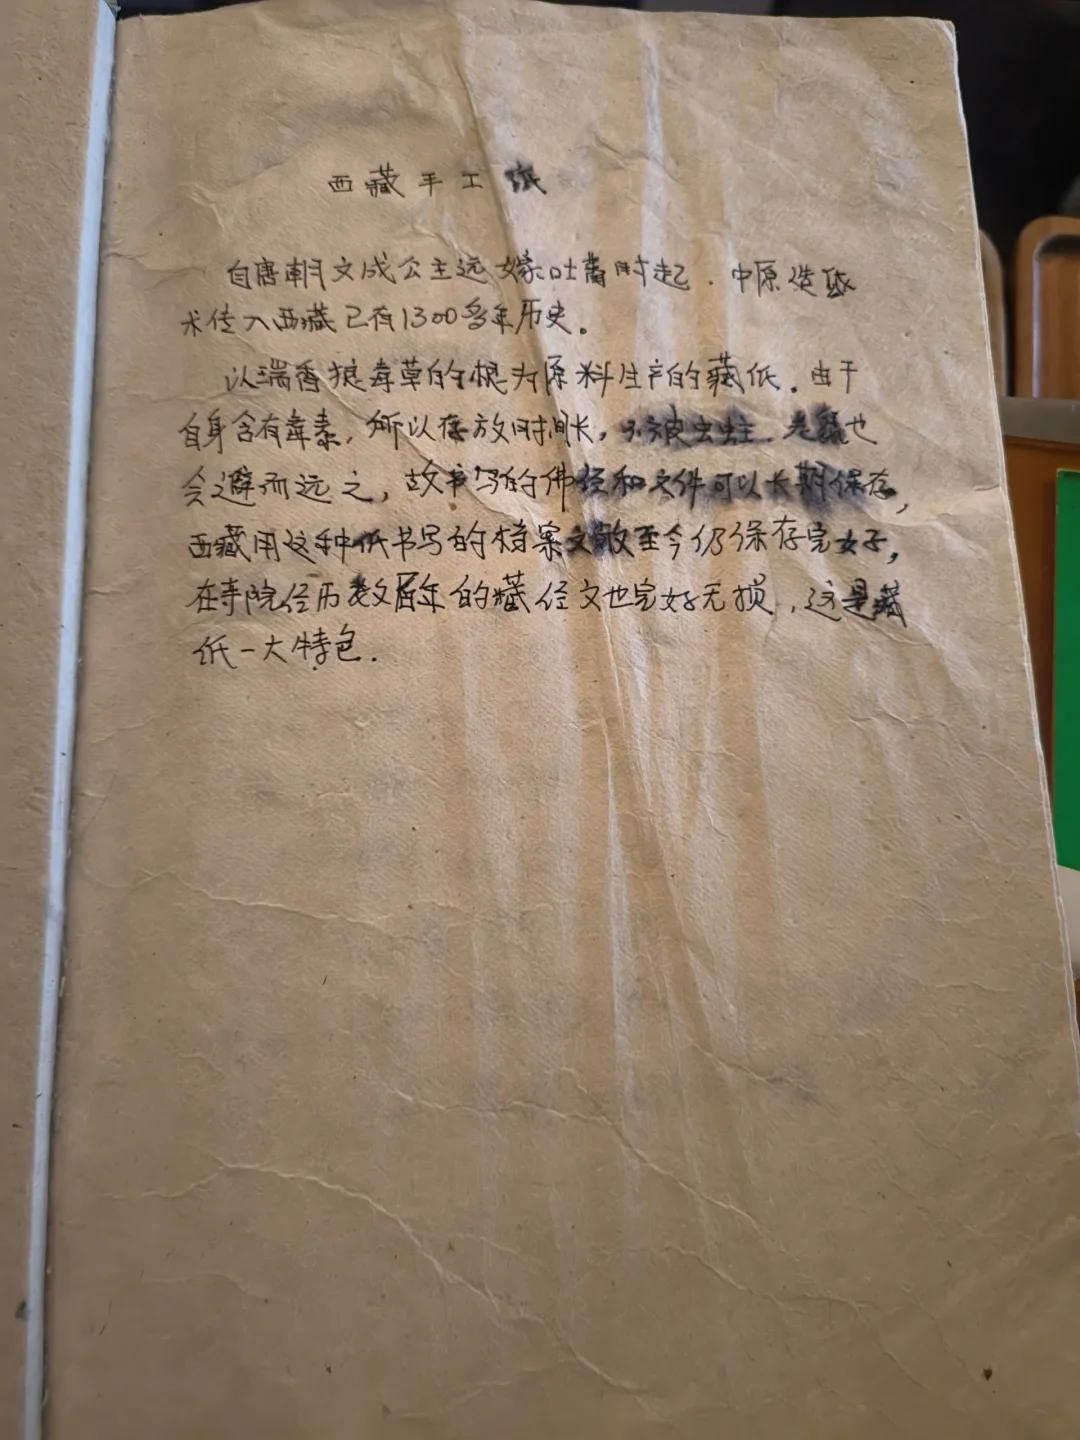 西藏手工纸
自唐朝文成公主远嫁吐蕃时起．中原造纸
术传入西藏已有1300多年历史。
以瑞香狼毒草的根为原料生产的藏纸．由于
自身含有毒素，所以存放时间长，不被虫蛀．老鼠也
会避而远之，故书写的佛经和文件可以长期保存，
西藏用这种纸书写的档案文献至今仍保存完好，
在寺院经历数百年的藏经文也完好无损，这是藏
纸一大特色．